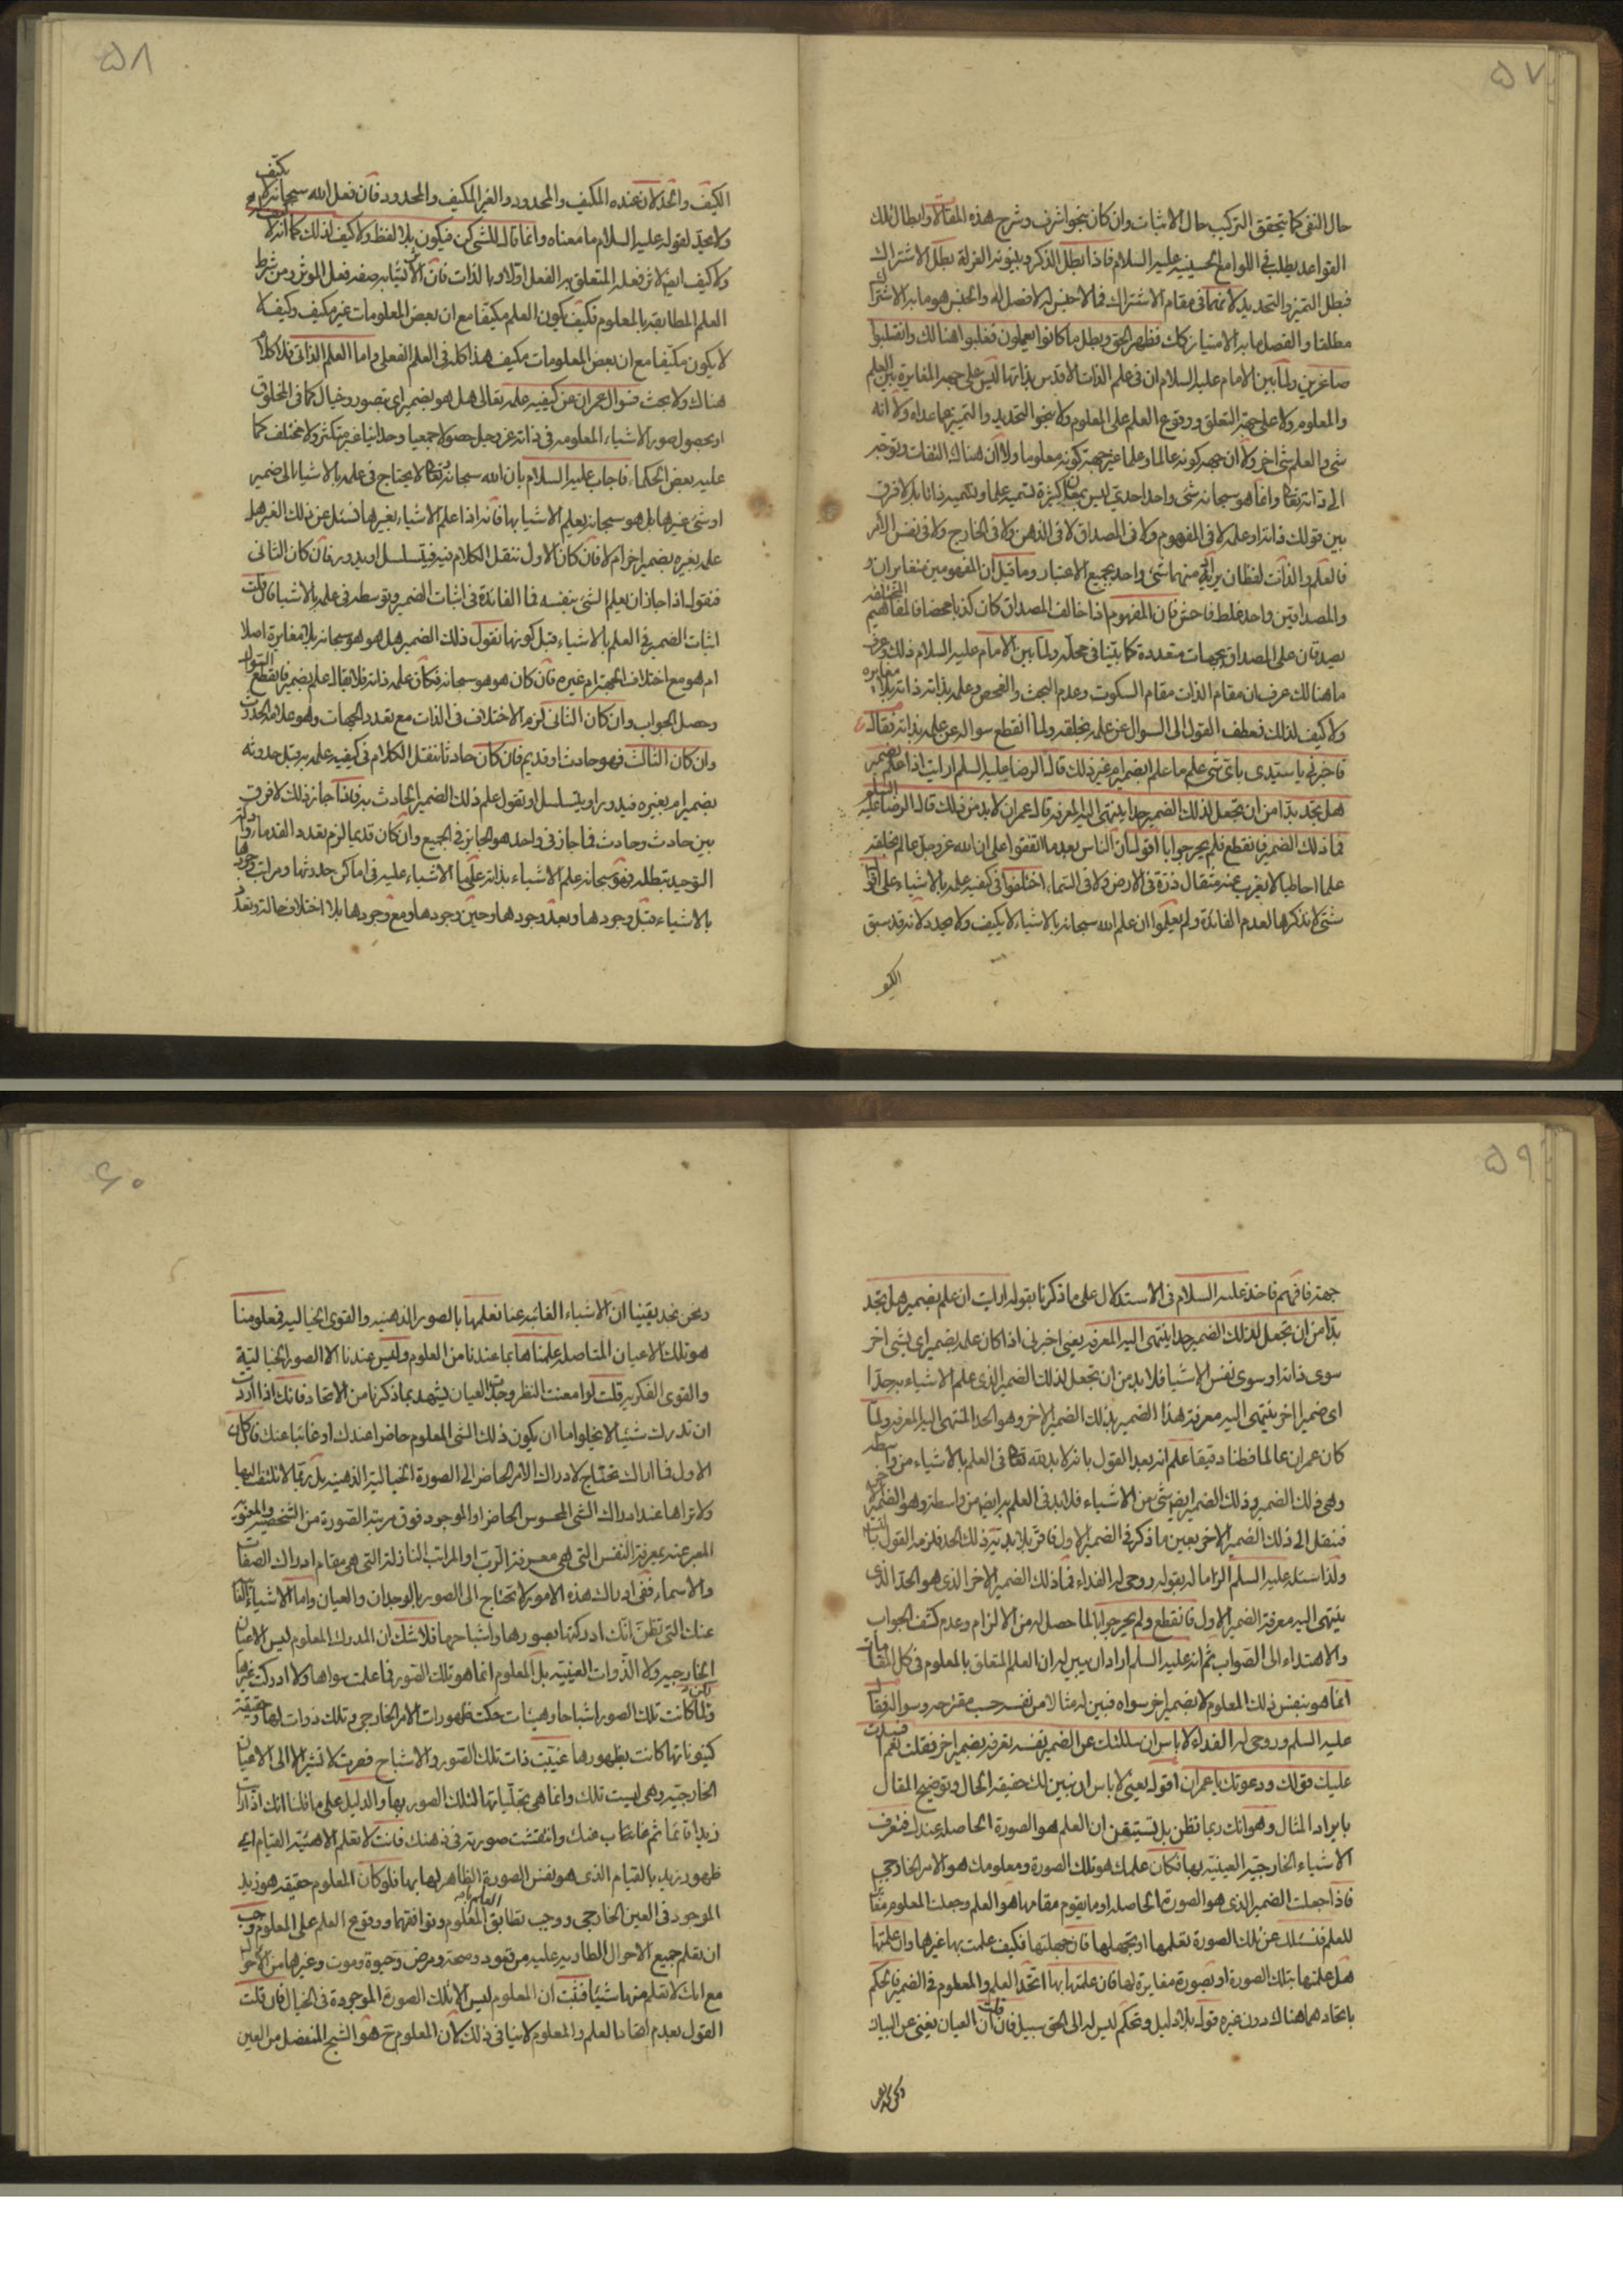 ۵۷
حال النفى كما يتحقق التركيب حال الاثبات وان كان بنحو اشرف وشرح هذه المقالة وابطال تلك
القواعد يطلب فى اللوامع الحسينيه عليه السلام فاذا بطل الذكر وبينونة العزلة بطل الاشتراك
فبطل التميز والتحديد لانهما فى مقام الاشتراك فما لا جنس له لا فصل له والجنس هو ما به الاشتراك
مطلقا والفصل ما به الامتياز كك فظهر الحق وبطل ما كانوا يعملون فغلبوا هنالك وانقلبوا
صاغرين ولما بين الامام عليه السلام ان فى علم الذات الاقدس بذاتها ليس على جهة المغايرة بين العلم
والمعلوم ولا على جهة التعلق ووقوع العلم على المعلوم ولا بنحو التحديد والتميز عما عداه ولا انه
شى والعلم شى اخر ولا ان جهة كونه عالما وعلما غير جهة كونه معلوما ولا ان هناك التفات وتوجه
الى ذاته تعالى وانما هو سبحانه شى واحد احدى ليس بمعان كثيرة تسميه علما وتسميه ذاتا بلا فرق
بين قولك ذاته او علمه لا فى المفهوم ولا فى المصداق لا فى الذهن ولا فى الخارج ولا فى نفس الامر
فالعلم والذات لفظان يراد منهما شى واحد بجميع الاعتبار وما قيل ان المفهومين متغايران
والمصداقين واحد غلط فاحش فان المفهوم اذا خالف المصداق كان كذبا محضا فالمفاهيم المختلفة
يصدقان على المصداق بجهات متعددة كما بينا فى محله ولما بين الامام عليه السلام ذلك وعرف
ما هنالك عرف ان مقام الذات مقام السكوت وعدم البحث والفحص وعلمه بذاته ذاته بلا مغايرة
ولا كيف لذلك فعطف القول الى السوال عن علمه بخلقه ولما انقطع سواله عن علمه بذاته فقال
فاخبرنى يا سيدى باى شى علم ما علم ابضمير ام غير ذلك قال الرضا عليه السلم ارايت اذا علم بضمير
هل تجد بدا من ان تجعل لذلك الضمير حدا ينتهى اليه المعرفة قال عمران لا بد من ذلك قال الرضا عليه السلم
فما ذلك الضمير فانقطع فلم يحر جوابا اقول ان الناس بعد ما اتفقوا على ان الله عز وجل عالم بخلقه
علما احاطيا لا يعزب عنه مثقال ذرة فى الارض ولا فى السماء اختلفوا فى كيفيه علمه بالاشياء على اقوال
شتى لا نذكرها لعدم الفائدة ولم يعلموا ان علم الله سبحانه بالاشياء لا يكيف ولا يحدد لانه قد سبق
الكيف
۵۸
الكيف والحد لان عنده المكيف والمحدود والغير المكيف والمحدود فان فعل الله سبحانه لا يكيف
ولا يحد لقوله عليه السلام ما معناه وانما قال للشى كن فيكون بلا لفظ ولا كيف لذلك كما انه لا
ولا كيف ايضا لاثر فعله المتعلق به الفعل اولا وبالذات فان الاثر يشابه صفة فعل الموثر ومن شرط
العلم المطابقة بالمعلوم فكيف يكون العلم مكيفا مع ان بعض المعلومات غير مكيف وكيف
لا يكون مكيفا مع ان بعض المعلومات مكيف هذا كله فى العلم الفعلى واما العلم الذاتى فلا كلام
هناك ولا بحث فسوال عمران عن كيفيه علمه تعالى هل هو بضمير اى بتصور وخيال كما فى المخلوق
او بحصول صور الاشياء المعلومه فى ذاته عز وجل حصولا جمعيا وحدانيا غير متكثر ولا مختلف كما
عليه بعض الحكماء فاجاب عليه السلام بان الله سبحانه وتعالى لا يحتاج فى علمه بالاشياء الى ضمير
او شى غيرها بل هو سبحانه يعلم الاشياء بها فانه اذا علم الاشياء بغيرها نسئل عن ذلك الغير هل
علم بغيره بضمير اخر ام لا فان كان الاول ننقل الكلام فيه فيتسلسل او يدور فان كان الثانى
فنقول اذا جاز ان يعلم الشى بنفسه فما الفائدة فى اثبات الضمير وتوسطه فى علمه بالاشيا فان قلت
اثبات الضمير فى العلم بالاشياء قبل كونها نقول ذلك الضمير هل هو هو سبحانه بلا مغايرة اصلا
ام هو مع اختلاف الجهة ام غيره فان كان هو هو سبحانه فكان علمه ذاته فلا يقال علم بضمير فانقطع السوال
وحصل الجواب وان كان الثانى لزم الاختلاف فى الذات مع تعدد الجهات وهو علامة الحدوث
وان كان الثالث فهو حادث او قديم فان كان حادثا ننقل الكلام فى كيفيه علمه به قبل حدوثه
بضمير ام بغيره فيدور او يتسلسل او نقول علم ذلك الضمير الحادث به فاذا جاز ذلك لا فرق
بين حادث وحادث فما جاز فى واحد هو الجايز فى الجميع وان كان قديما لزم تعدد القدماء وادلة
التوحيد تبطله فهو سبحانه علم الاشياء بذاته على ما الاشياء عليه فى اماكن حدودها ومراتب وجودها
بالاشياء قبل وجودها وبعد وجودها وحين وجودها ومع وجودها بلا اختلاف حالة وتعدد
۵۹
جهة فافهم فاخذ عليه السلام فى الاستدلال على ما ذكرنا بقوله ارايت ان علم بضمير هل تجد
بدا من ان تجعل لذلك الضمير حدا ينتهى اليه المعرفه يعنى اخبرنى اذا كان علمه بضمير اى بشى اخر
سوى ذاته او سوى نفس الاشيا فلا بد من ان تجعل لذلك الضمير الذى علم الاشياء به حدا
اى ضميرا اخر ينتهى اليه معرفة هذا الضمير بذلك الضمير الاخر وهو الحد المنتهى اليه المعرفه ولما
كان عمران عالما فطنا دقيقا علم انه بعد القول بانه لا بد لله تعالى فى العلم بالاشياء من واسطة
وهى ذلك الضمير وذلك الضمير ايضا شى من الاشياء فلا بد فى العلم به ايضا من واسطة وهو الضمير الاخر
فننقل الى ذلك الضمير الاخر بعين ما ذكر فى الضمير الاول فاقر بلا بدية ذلك الحد فلزمه القول بالتسلسل
ولذا سئله عليه السلم الزاما له بقوله روحى له الفداء فما ذلك الضمير الاخر الذى هو الحد الذى
ينتهى اليه معرفة الضمير الاول فانقطع ولم يحر جوابا لما حصل له من الالزام وعدم كشف الجواب
والاهتداء الى الصواب ثم انه عليه السلم اراد ان يبين له ان العلم المتعلق بالمعلوم فى كل المقامات
انما هو بنفس ذلك المعلوم لا بضمير اخر سواه فبين له مثالا من نفسه حسب مقترحه وسواله فقال
عليه السلم وروحى له الفداء لا باس ان سئلتك عن الضمير نفسه تعرفه بضمير اخر فقلت نعم افسدت
عليك قولك ودعوتك يا عمران اقول يعنى لا باس ان نبين لك حقيقة الحال وتوضيح المقال
بايراد المثال وهو انك ربما تظن بل تستيقن ان العلم هو الصورة الحاصلة عندك فتعرف
الاشياء الخارجيه العينيه بها فكان علمك هو تلك الصورة ومعلومك هو الامر الخارجى
فاذا جعلت الضمير الذى هو الصورة الحاصلة او ما يقوم مقامها هو العلم وجعلت المعلوم مغايرا
للعلم فنسئلك عن تلك الصورة تعلمها او تجهلها فان جهلتها فكيف علمت بها غيرها وان علمتها
هل علمتها بتلك الصورة او بصورة مغايرة لها فان علمتها بها اتحد العلم والمعلوم فى الضمير فالحكم
باتحادهما هناك دون غيره قول بلا دليل وتحكم ليس له الى الحق سبيل فان قلت ان العيان يغنى عن البيان
۶۰
ونحن نجد يقينا ان الاشياء الغائبه عنا نعلمها بالصور الذهنيه والقوى الخياليه فمعلومنا
هو تلك الاعيان المتاصلة علمناها بما عندنا من العلوم وليس عندنا الا الصور الخيالية
والقوى الفكريه قلت لو امعنت النظر وجدت العيان يشهد بما ذكرنا من الاتحاد فانك اذا اردت
ان تدرك شيئا لا يخلو اما ان يكون ذلك الشى المعلوم حاضرا عندك او غائبا عنك فان كان
الاول فما اراك تحتاج لادراك الامر الحاضر الى الصورة الخيالية الذهنيه بل ربما لا تلتفت اليها
ولا تراها عند ادراك الشى المحسوس الحاضر او الموجود فوق مرتبة الصورة من الشخصية والمعنوية
المعبر عنه بمعرفة النفس التى هى معرفة الرب او المراتب النازلة التى هى مقام ادراك الصفات
والاسماء ففى ادراك هذه الامور لا تحتاج الى الصور بالوجدان والعيان واما الاشياء الغائبة
عنك التى تظن انك ادركتها بصورها واشباحها فلا شك ان المدرك المعلوم ليس الاعيان
الخارجيه ولا الذوات العينيه بل المعلوم انما هو تلك الصور فما علمت سواها ولا ادركت غيرها
ولما كانت تلك الصور اشباحا وهيئات حكت ظهورات الامر الخارجى وتلك ذوات لها وحقيقة
كينوناتها كانت بظهورها غيبت ذات تلك الصور والاشباح فصرت لا تشير الا الى الاعيان
الخارجيه وهى ليست تلك وانما هى تجلياتها لتلك الصور بها والدليل على ما قلنا انك اذا رايت
زيدا قائما ثم غاب عنك وانتقشت صورته فى ذهنك فانت لا تعلم الا هيئة القيام اى
ظهور زيد بالقيام الذى هو نفس الصورة الظاهر لها بها فلو كان المعلوم حقيقة هو زيد
الموجود فى العين الخارجى ووجب تطابق العلم بالمعلوم وتوافقهما ووقوع العلم على المعلوم وجب
ان تعلم جميع الاحوال الطاريه عليه من قعود وصحة ومرض وحيوة وموت وغيرها من الاحوال
مع انك لا تعلم منها شيئا فثبت ان المعلوم ليس الا تلك الصورة الموجودة فى الخيال فان قلت
القول بعدم اتحاد العلم والمعلوم لا ينافى ذلك لان المعلوم ح هو الشبح المنفصل من العين